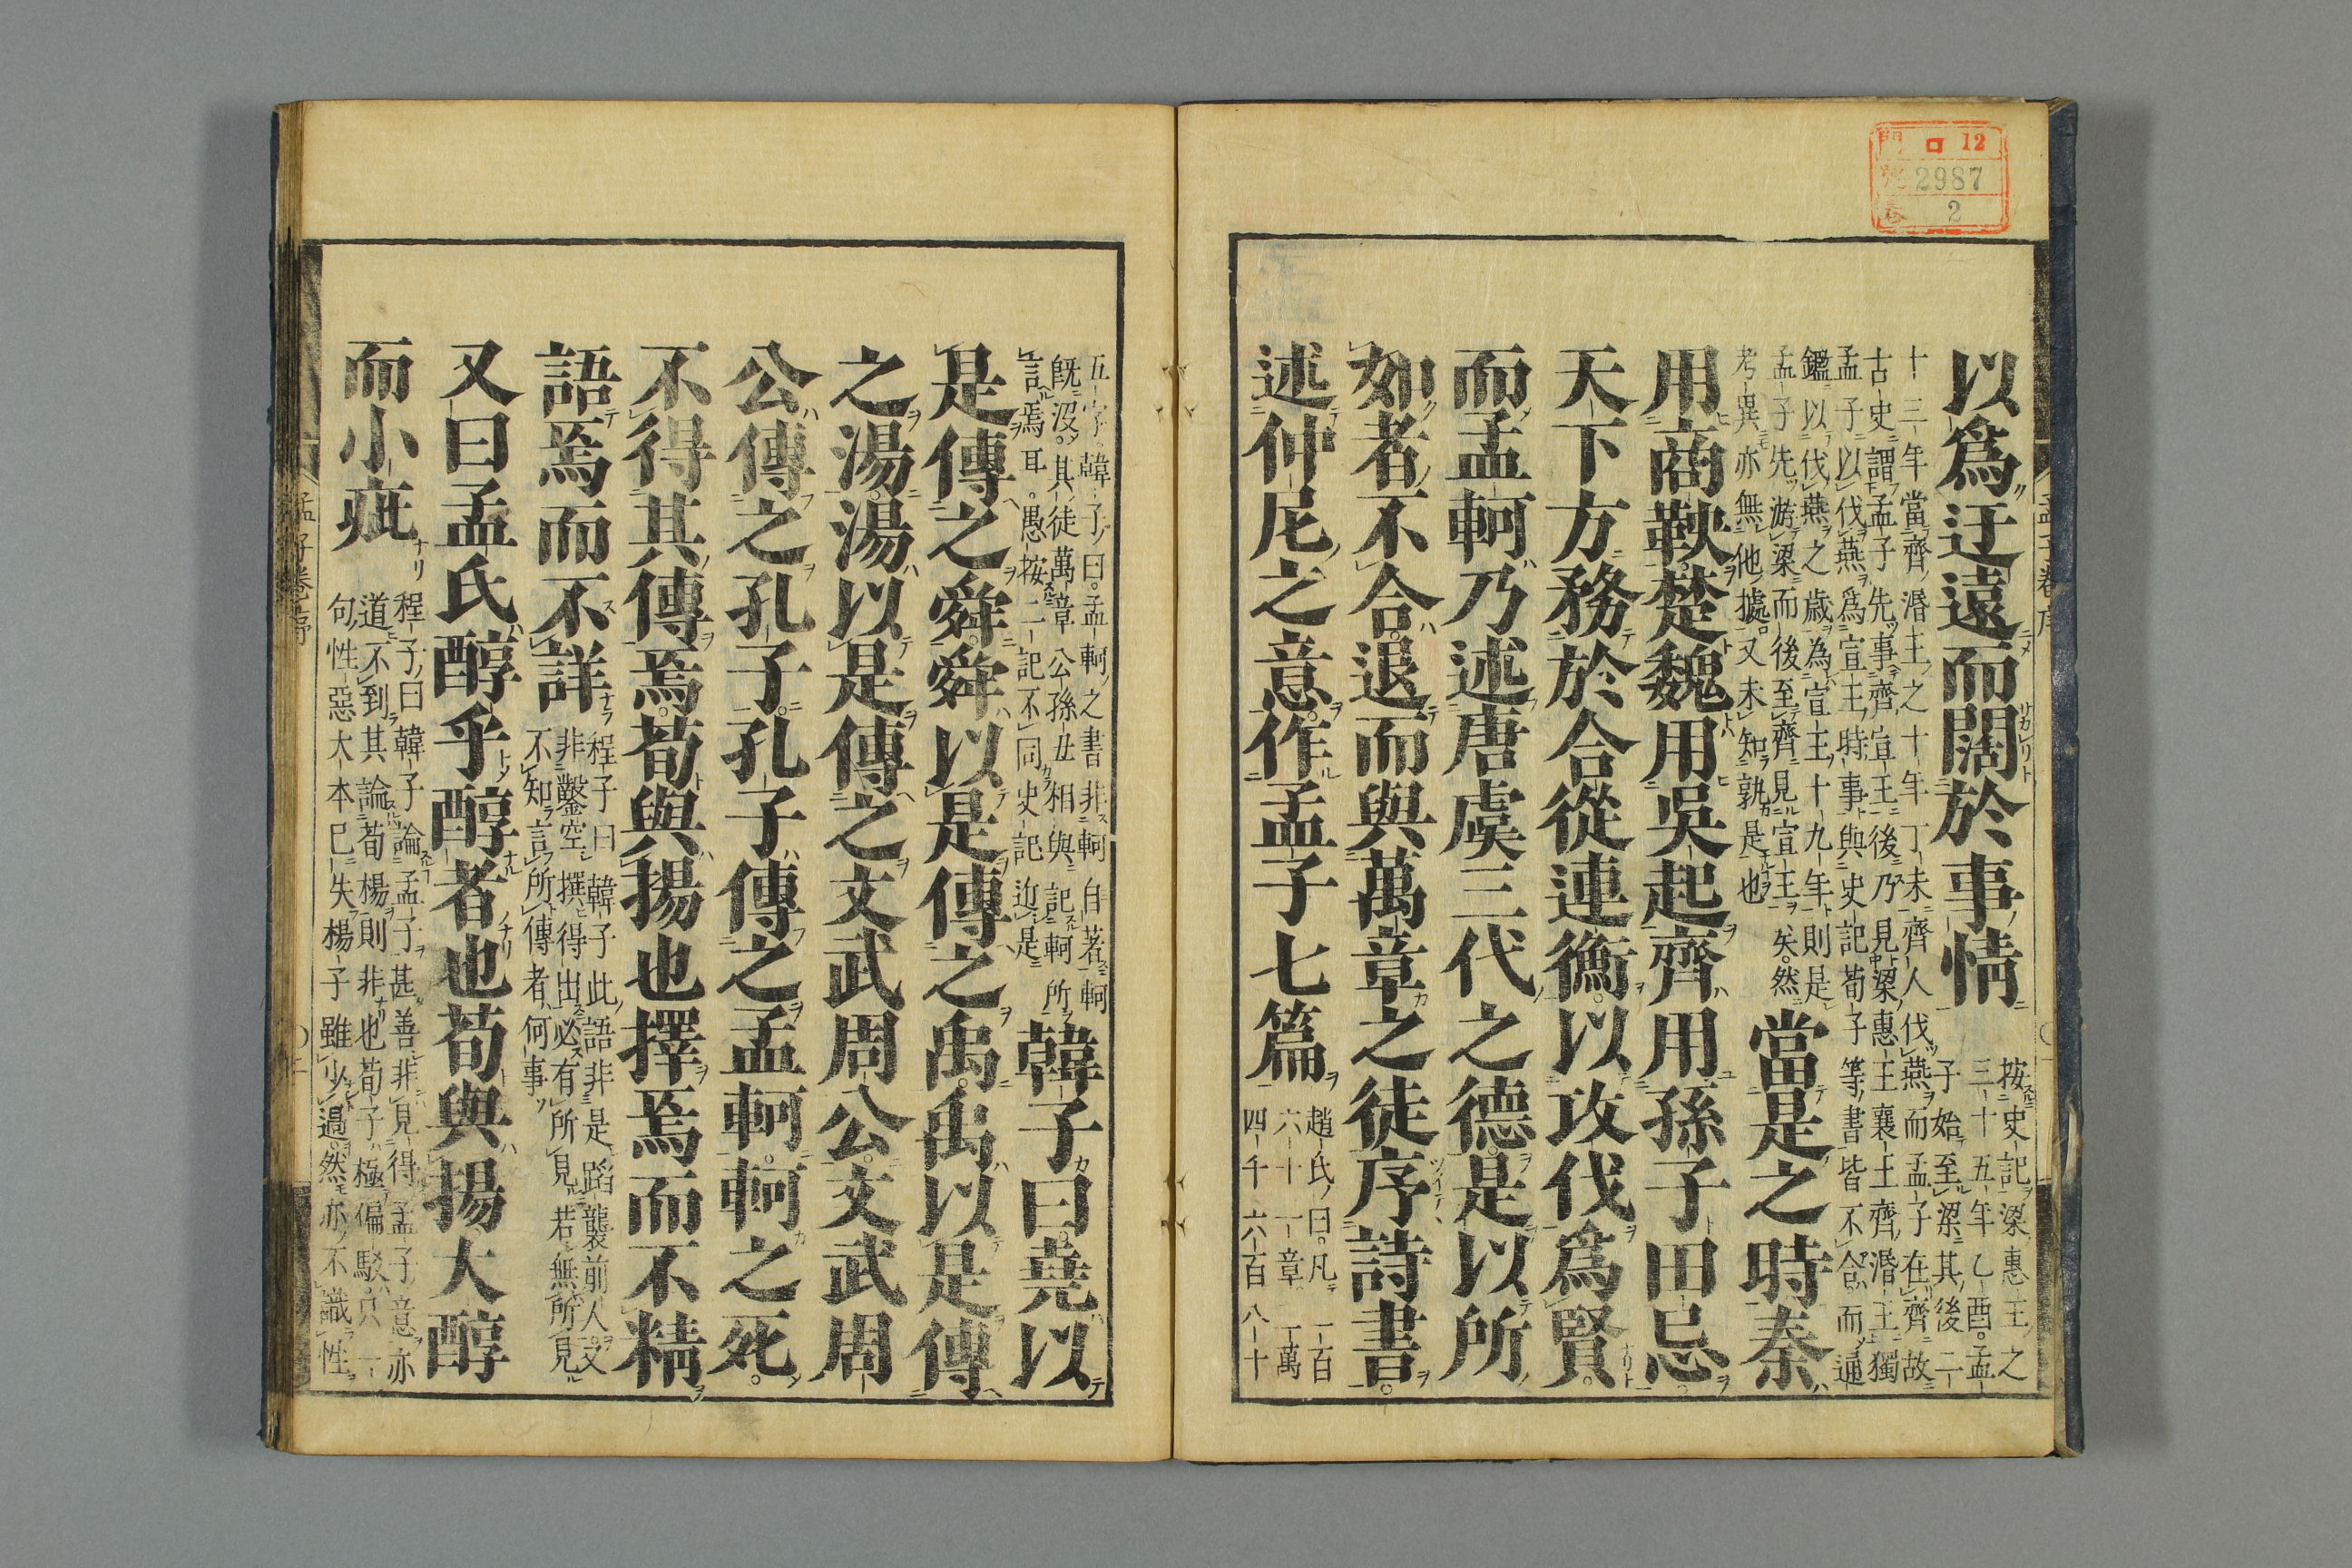 門 ロ 12
號 2987
巻 2
以爲迂遠而闊於事情
按史記梁惠王之
三十五年乙酉。孟
子始至梁其後二
十三年當齊湣王之十年丁未齊人伐燕而孟子在齊故
古史謂孟子先事齊宣王後乃見梁惠王襄王齊湣王獨
孟子以伐燕爲宣王時事與史記荀子等書皆不合而通
鑑以伐燕之歲為宣王十九年則是
孟子先游梁而後至齊見宣王矣。然
考異亦無他據。又未知孰是也
當是之時秦
用商鞅。楚魏用吳起齊用孫子田忌。
天下方務於合從連衡。以攻伐爲賢。
而孟軻乃述唐虞三代之德。是以所
如者不合。退而與萬章之徒序詩書。
述仲尼之意。作孟子七篇
趙氏曰。凡
二百
六十一章三萬
四千六百八十
五字。韓子曰。孟軻之書非軻自著軻
既沒。其徒萬章公孫丑相與記軻所
言焉耳。愚按二記不同史記近是
韓子曰。堯以
是傳之舜。舜以是傳之禹。禹以是傳
之湯。湯以是傳之文武周公。文武周
公傳之孔子。孔子傳之孟軻。軻之死。
不得其傳焉。荀與揚也擇焉而不精
語焉而不詳
程子曰韓子此語非是蹈襲前人。又
非鑿空撰得出必有所見若無所見
不知言所傳者何事
又曰孟氏醇乎醇者也荀與揚大醇
而小疵
程子曰韓子論孟子甚善非見得孟子意亦
道不到其論荀楊則非也荀子極偏駁。只一
句性惡大本已失楊子雖少過。然亦不識性
孟子卷序
孟子卷序